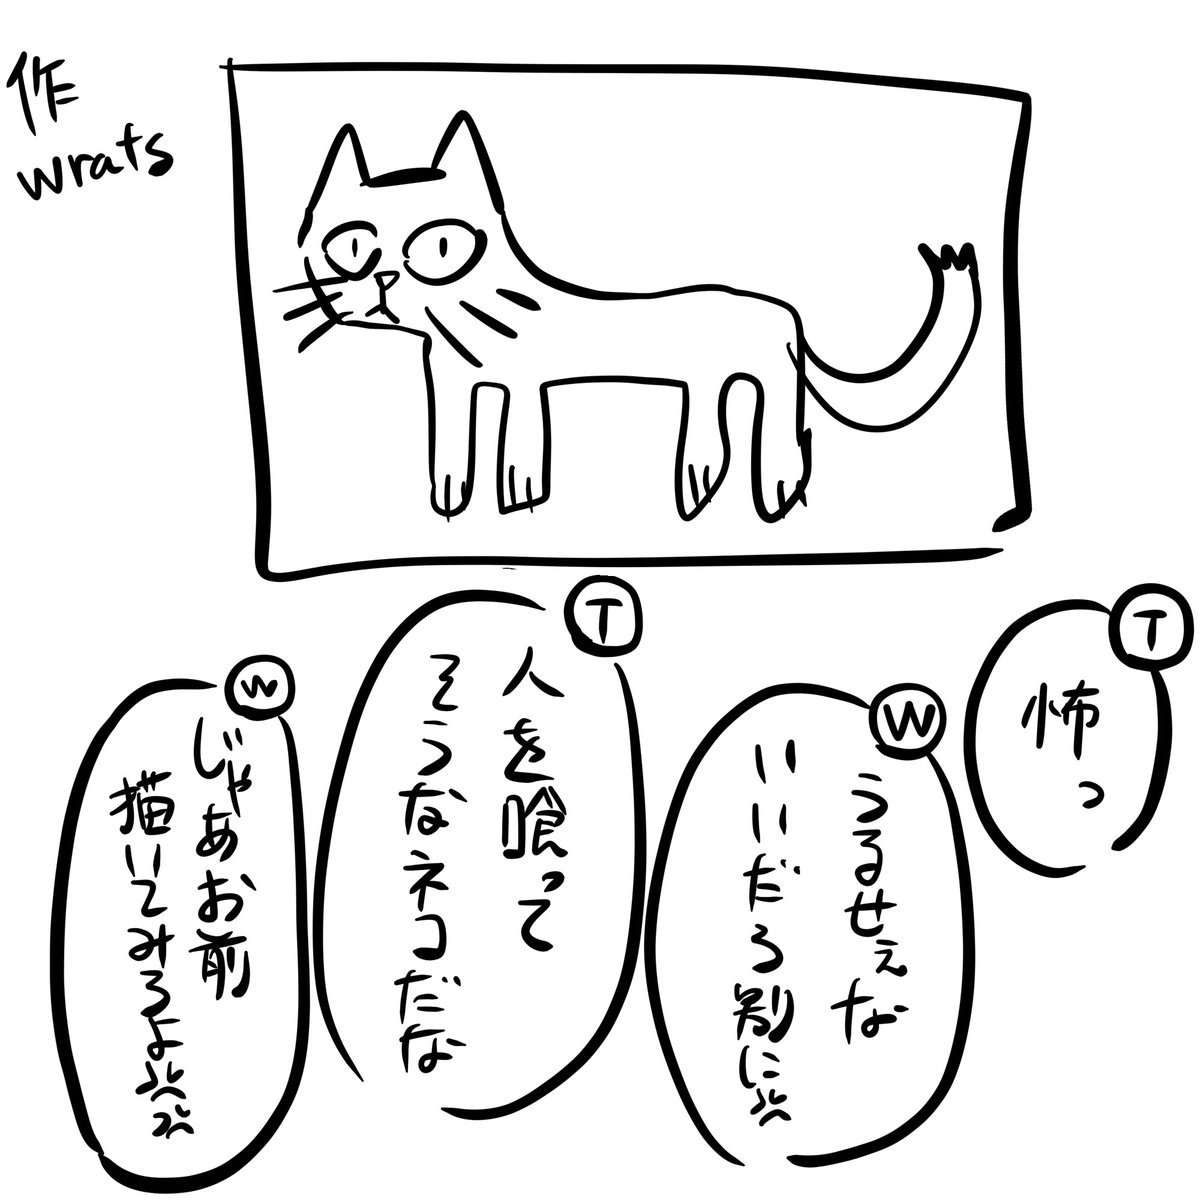 作
wrats
T
怖っ
W
うるせぇな
いいだろ別に💢
T
人を喰って
そうなネコだな
W
じゃあお前
描いてみろよ💢💢